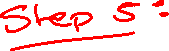 Step 5: